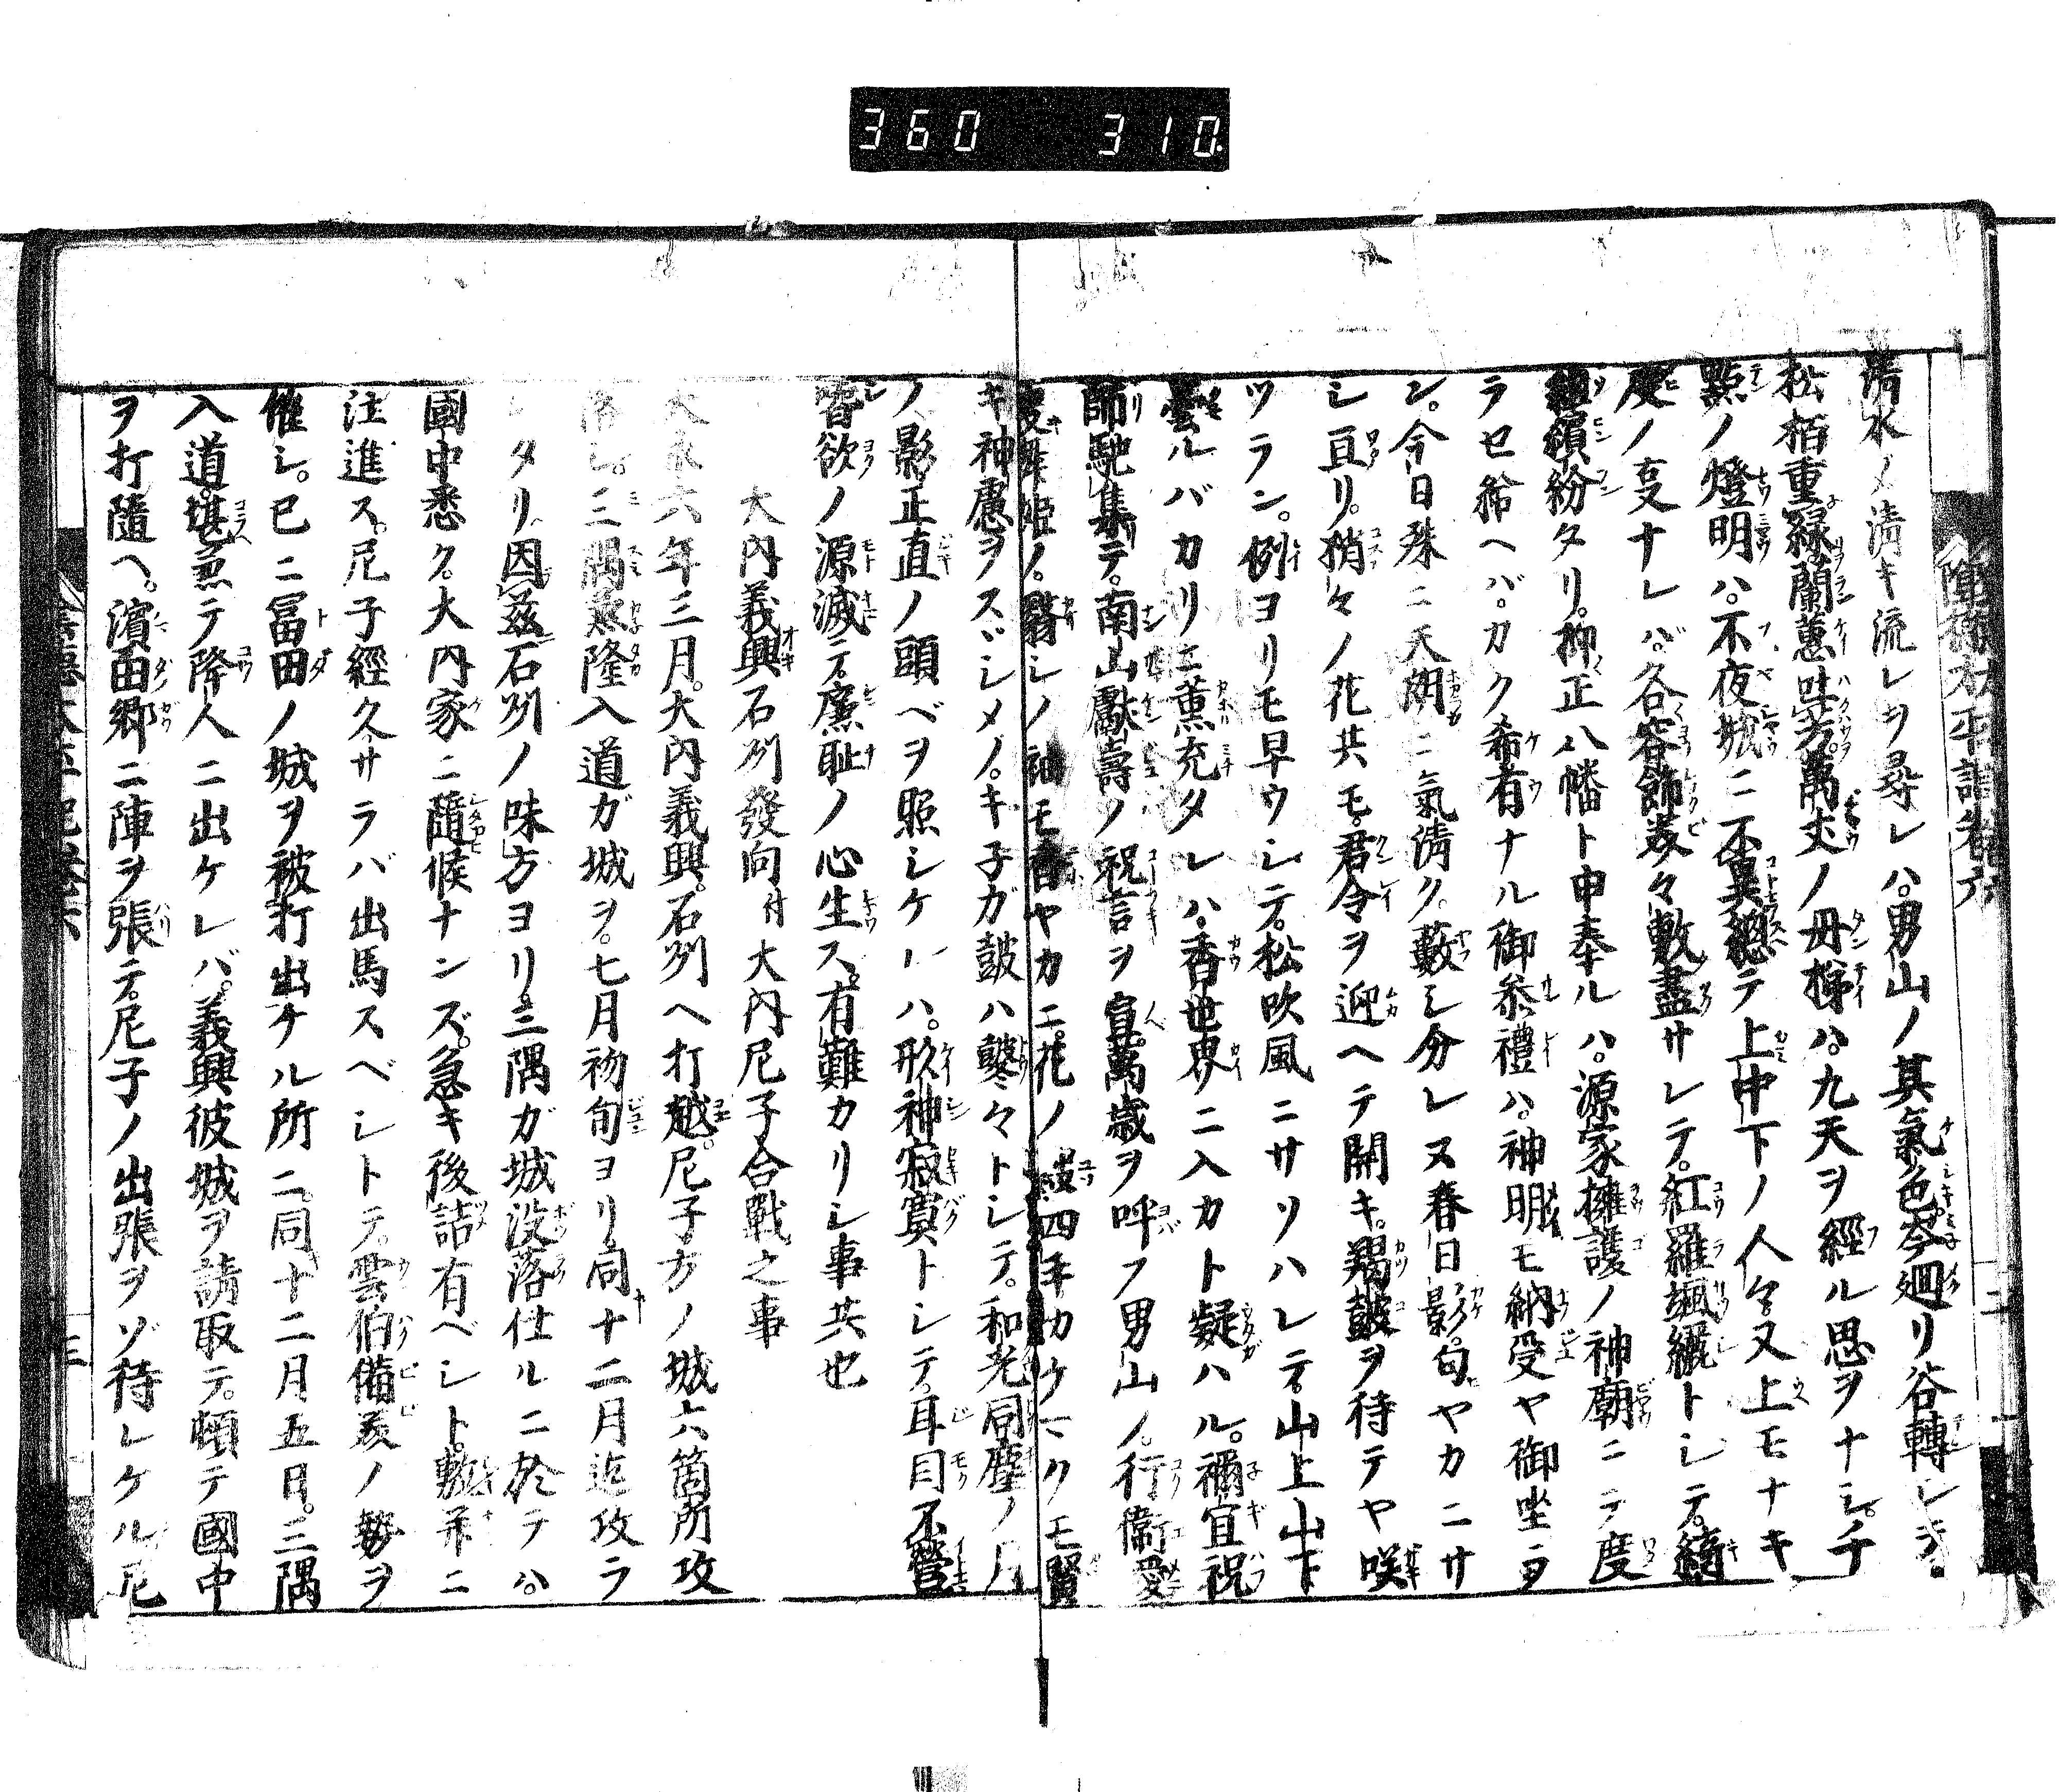 360 310.
陰徳太平記卷六
清水ノ清キ流レヲ尋レハ。男山ノ其氣色岑廻リ谷轉レテ。
松栢重緑蘭蕙吐芳。萬丈ノ丹梯ハ。九天ヲ經ル思ヲナシ。千
點ノ燈明ハ。不夜城ニ不異。總テ上中下ノ人々。又上モナキ
度ノ支ナレバ。各容飾羨々敷盡サレテ。紅羅颯纚トシテ。綺
組繽紛タリ。抑正八幡ト申奉ルハ。源家擁護ノ神廟ニテ度
ラセ給ヘバ。カク希有ナル御參禮ハ。神明モ納受ヤ御坐ヲ
ン。今日殊ニ天朗ニ氣清ク。藪シ分レヌ春日影。匂ヤカニサ
シ亘リ。梢々ノ花共モ。君令ヲ迎ヘテ開キ。羯皷ヲ待テヤ咲
ツラン。例ヨリモ早ウシテ。松吹風ニサソハレテ。山上山下
曇ルバカリニ薫充タレハ。香世界ニ入カト疑ハル。禰宜祝
師馳集テ。南山獻壽ノ祝言ヲ宣。萬歳ヲ呼フ男山ノ。行衞愛
度舞姫ノ。飜シノ袖モ香ヤカニ。花ノ皷四手カケマクモ賢
キ神慮ヲスヾシメノ。キ子ガ皷ハ鼕々トシテ。和光同塵ノ月
ノ影正直ノ頭ベヲ照シケレハ。形神寂寞トシテ。耳目不營
嗜欲ノ源滅テ。廉耻ノ心生ス。有難カリシ事共也
大内義興石列發向付大内尼子合戰之事
大永六年三月。大内義興。石列ヘ打越。尼子方ノ城六箇所攻
落シ。三隅兼隆入道ガ城ヲ。七月初旬ヨリ同十二月迄攻ラ
レタリ。因茲石列ノ味方ヨリ。三隅ガ城没落仕ルニ於テハ。
國中悉ク。大内家ニ隨候ナンズ。急キ後詰有ベシト。數不ニ
注進ス。尼子經久サラバ出馬スベシトテ。雲伯備羨ノ勢ヲ
催シ。已ニ冨田ノ城ヲ被打出ケル所ニ。同十二月五日。三隅
入道。堪煎テ降人ニ出ケレバ。義興彼城ヲ請取テ。頓テ國中
ヲ打隨ヘ。濱田郷ニ陣ヲ張テ。尼子ノ出張ヲゾ待レケル尼
三